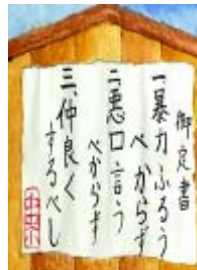 御定書
一、暴力ふるう
べからず
二、悪口言う
べからず
三、仲良く
するべし